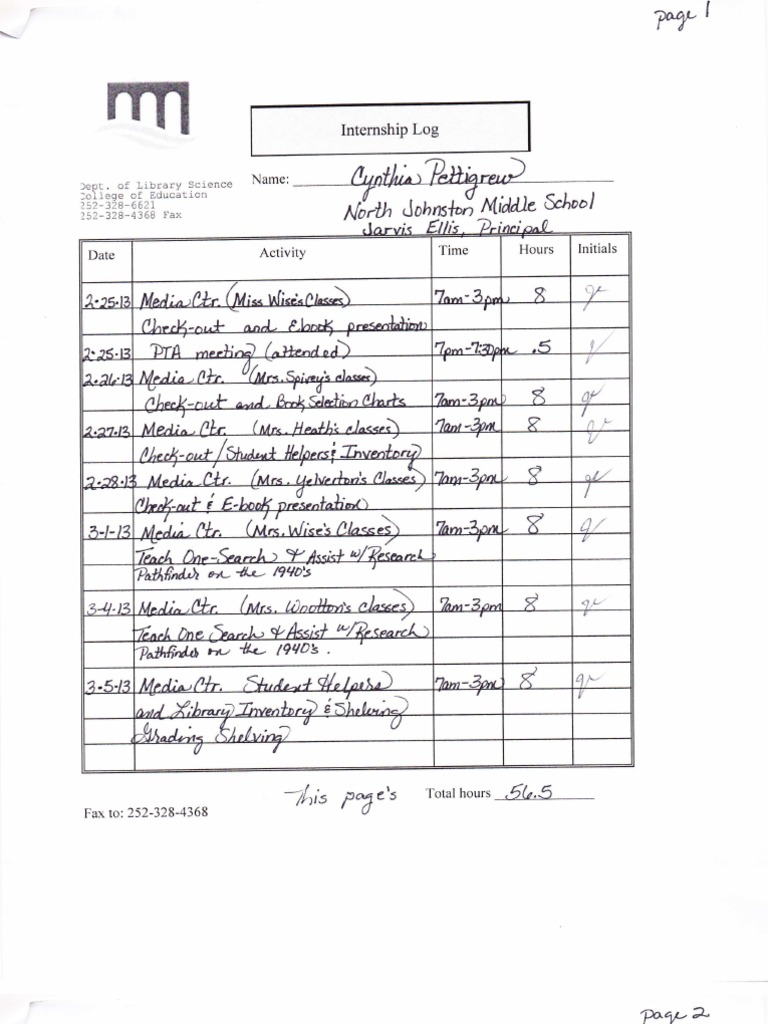 page 1
Internship Log
Dept. of Library Science
College of Education
252-328-6621
252-328-4368 Fax
Name: Cynthia Pettigrew
North Johnston Middle School
Jarvis Ellis, Principal
Date Activity Time Hours Initials
2-25-13 Media Ctr. (Miss Wise's Classes) 7am-3pm 8
Check-out and Ebook presentation
2-25-13 PTA meeting (attended) 7pm-7:30pm .5
2-26-13 Media Ctr. (Mrs. Spivey's classes)
Check-out and Book Selection Charts 7am-3pm 8
2-27-13 Media Ctr. (Mrs. Heath's classes) 7am-3pm 8
Check-out/Student Helpers & Inventory
2-28-13 Media Ctr. (Mrs. Yelverton's Classes) 7am-3pm 8
Check-out & E-book presentation
3-1-13 Media Ctr. (Mrs. Wise's Classes) 7am-3pm 8
Teach One-Search & Assist w/Research
Pathfinder on the 1940's
3-4-13 Media Ctr. (Mrs. Wootton's classes) 7am-3pm 8
Teach One Search & Assist w/Research
Pathfinder on the 1940's.
3-5-13 Media Ctr. Student Helpers 7am-3pm 8
and Library Inventory & Shelving
Grading Shelving
This page's Total hours 56.5
Fax to: 252-328-4368
page 2